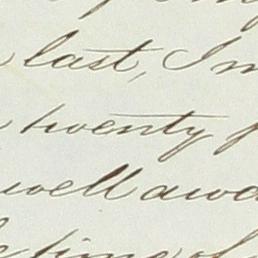 last, I
twenty
well awa
time of